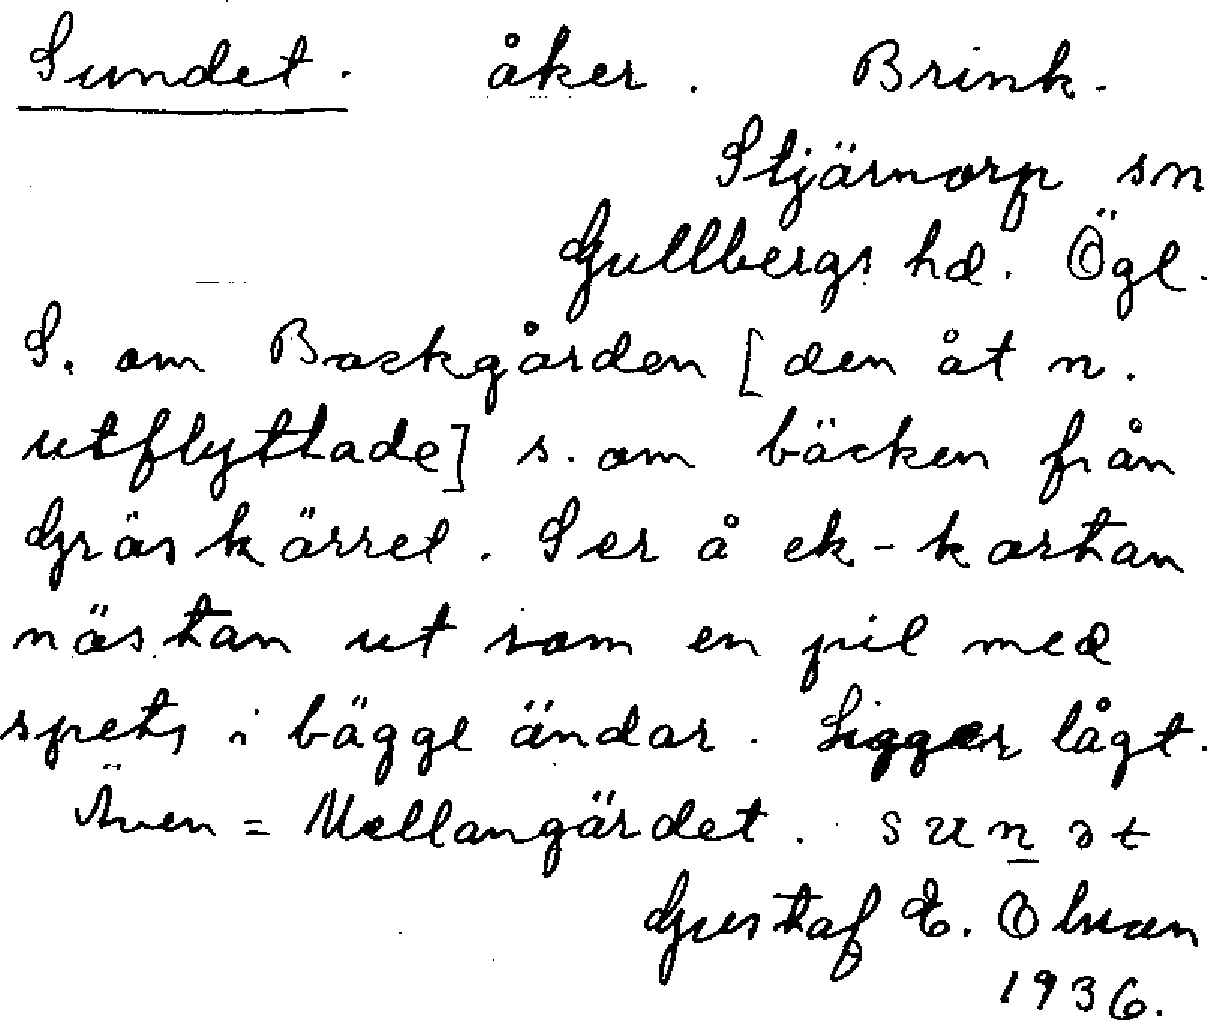 Sundet. åker. Brink.
Stjärnorp sn
Gullbergs hd. Ögl.
S. om Backgården [den åt n.
utflyttade] s. om bäcken från
Gräskärret. Ser å ek-kartan
nästan ut som en pil med
spets i bägge ändar. Ligger lågt.
Även = Mellangärdet. sunət
Gustaf E. Olsson
1936.